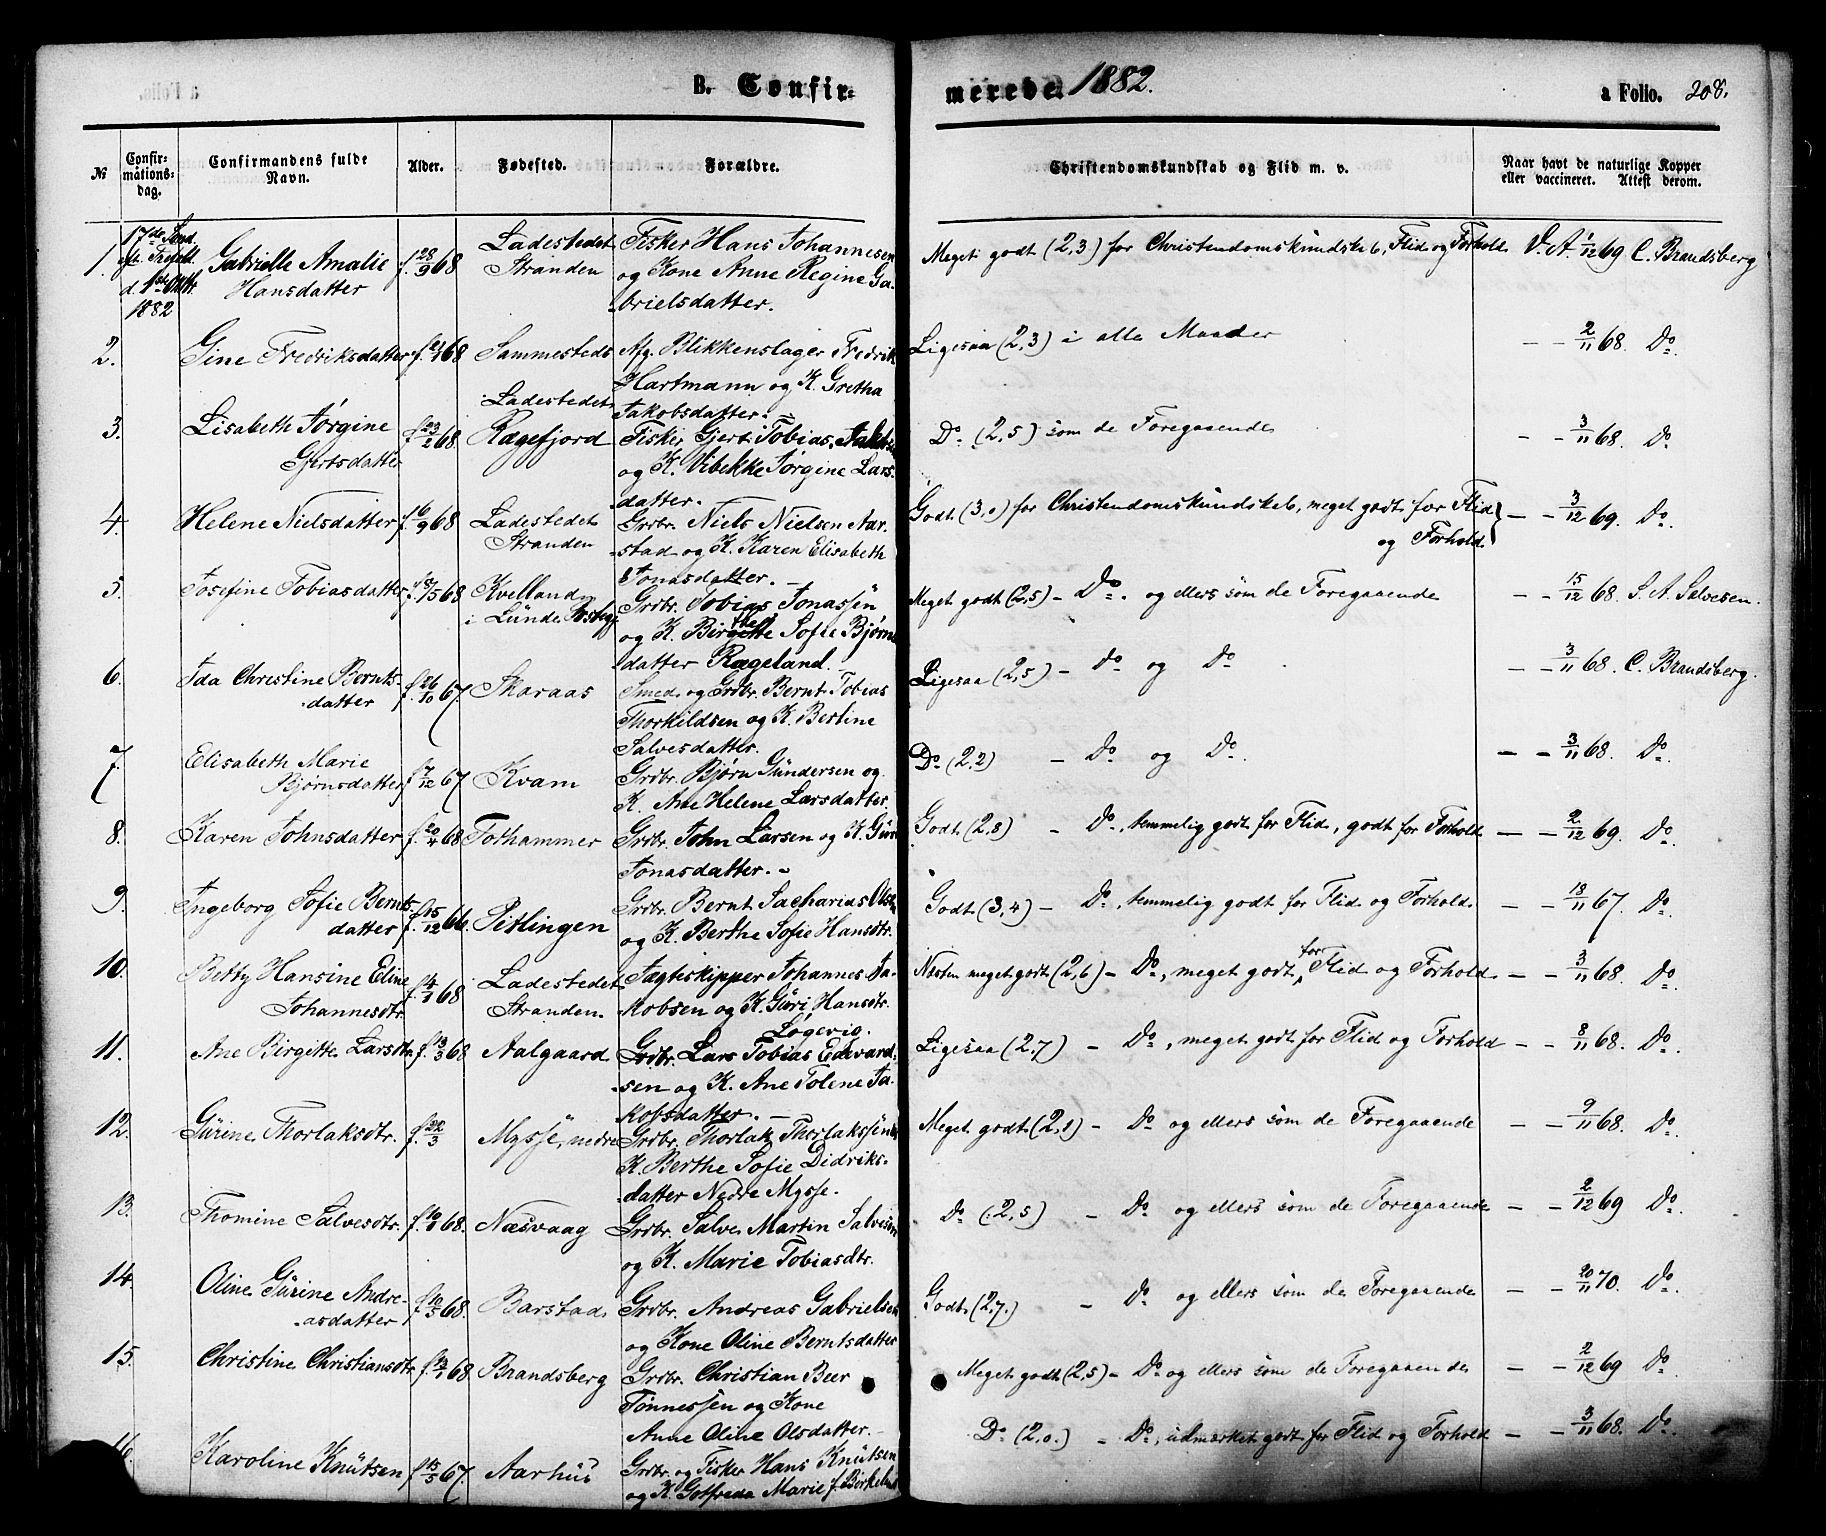 B. Confir-
merede 1882.
a Folio. 208.
№
Confir-
mations-
dag.
Confirmandens fulde
Navn.
Alder.
Fødested.
Forældre.
Christendomskundskab og Flid m. v.
Naar havt de naturlige Kopper
eller vaccineret. Attest derom.
1. 17de Sønd.
d. 1ste Oktbr.
1882
Gabrielle Amalie
Hansdatter
f. 28/9 68
Ladestedet
Stranden
Fisker Hans Johannesen
og Kone Anne Regine Ga-
brielsdatter.
Meget godt (2,3) for Christendomskundskab, Flid og Forhold. V. A. 1/12 69 C. Brandsberg
2. Gine Fredriksdatter f. 21/1 68 Sammesteds
Afg. Blikkenslager Fredrik
Hartmann og K. Gretha
Jakobsdatter.
Ligesaa (2,3) i alle Maader — - 2/11 68. Do.
3. Lisabeth Jørgine
Gjertsdatter
f. 23/2 68.
Ladestedet
Rægefjord
Fisker Gjert Tobias Jakobsen
og K. Vibekke Jørgine Lars-
datter.
Do. (2,5) som de Foregaaende — - 3/11 68. Do.
4. Helene Nielsdatter f. 16/9 68
Ladestedet
Stranden
Grdbr. Niels Nielsen Aar-
stad og K. Karen Elisabeth
Jonasdatter. —
Godt (3,0) for Christendomskundskab, meget godt for Flid
og Forhold. — - 3/12 69. Do.
5. Josefine Tobiasdatter f. 8/5 68
Kvelland
i Lunde
Grdbr. Tobias Jonassen
og K. Birgitte Sofie Bjørns-
datter Rægeland. —
Meget godt (2,5) — Do. og ellers som de Foregaaende — - 15/12 68. S. A. Salvesen.
6. Ida Christine Bernts-
datter
f. 26/10 67. Skaraas
Smed og Grdbr. Bernt Tobias
Thorkildsen og K. Bertine
Salvesdatter.
Ligesaa (2,5) — Do. og Do. — - 3/11 68. C. Brandsberg.
7. Elisabeth Marie
Bjørnsdatter
f. 7/12 67 Kvam
Grdbr. Bjørn Gundersen og
K. Ane Helene Larsdatter.
Do. (2,2) — Do. og Do. — - 3/11 68. Do.
8. Karen Johnsdatter f. 20/4 68 Fothammer
Grdbr. John Larsen og K. Guri
Jonasdatter. -
Godt (2,8) — Do., temmelig godt for Flid, godt for Forhold — - 2/12 69. Do.
9. Ingeborg Sofie Bernts-
datter
f. 15/12 66. Pitlingen
Grdbr. Bernt Sacharias Olsen
og K. Berthe Sofie Hansdtr.
Godt (3,4) — Do., temmelig godt for Flid og Forhold. — - 13/11 67. Do.
10. Betty Hansine Eline
Johannesdtr.
f. 4/1 68
Ladestedet
Stranden.
Jagtskipper Johannes Ja-
kobsen og K. Guri Hansdtr.
Løgevig.
Næsten meget godt (2,6) — Do., meget godt for Flid og Forhold — - 3/11 68. Do.
11. Ane Birgitte Larsdtr. f. 13/3 68 Aalgaard
Grdbr. Lars Tobias Edvard-
sen og K. Ane Tolene Ja-
kobsdatter. —
Ligesaa (2,7) — Do., meget godt for Flid og Forhold — - 8/11 68. Do.
12. Gurine Thorlaksdtr. f. 22/3 Mysse, nedre
Grdbr. Thorlak Thorlakssen og
K. Berthe Sofie Didriks-
datter Nedre Mysse.
Meget godt (2,1) — Do. og ellers som de Foregaaende — - 9/11 68. Do.
13. Thomine Salvesdtr. f. 10/1 68. Næsvaag
Grdbr. Salve Martin Salvesen
og K. Marie Tobiasdtr.
Do. (2,5) — Do. og ellers som de Foregaaende — - 2/12 69 Do.
14. Oline Gurine Andre-
asdatter
f. 10/5 68. Barstad
Grdbr. Andreas Gabrielsen
og Kone Oline Berntsdatter
Godt (2,7.) — Do. og ellers som de Foregaaende — - 20/11 70. Do.
15. Christine Christiansdtr. f. 23/1 68. Brandsberg
Grdbr. Christian Beer
Tønnessen og Kone
Anne Oline Olsdatter. —
Meget godt (2,5) — Do. og ellers som de Foregaaende — - 2/12 69 Do.
16. Karoline Knutsen f. 15/5 67. Aarhus
Grdbr. og Fisker Hans Knutsen
og K. Gotfreda Marie f. Birkeland
Do. (2,0.) — Do., udmærket godt for Flid og Forhold — - 3/11 68. Do.